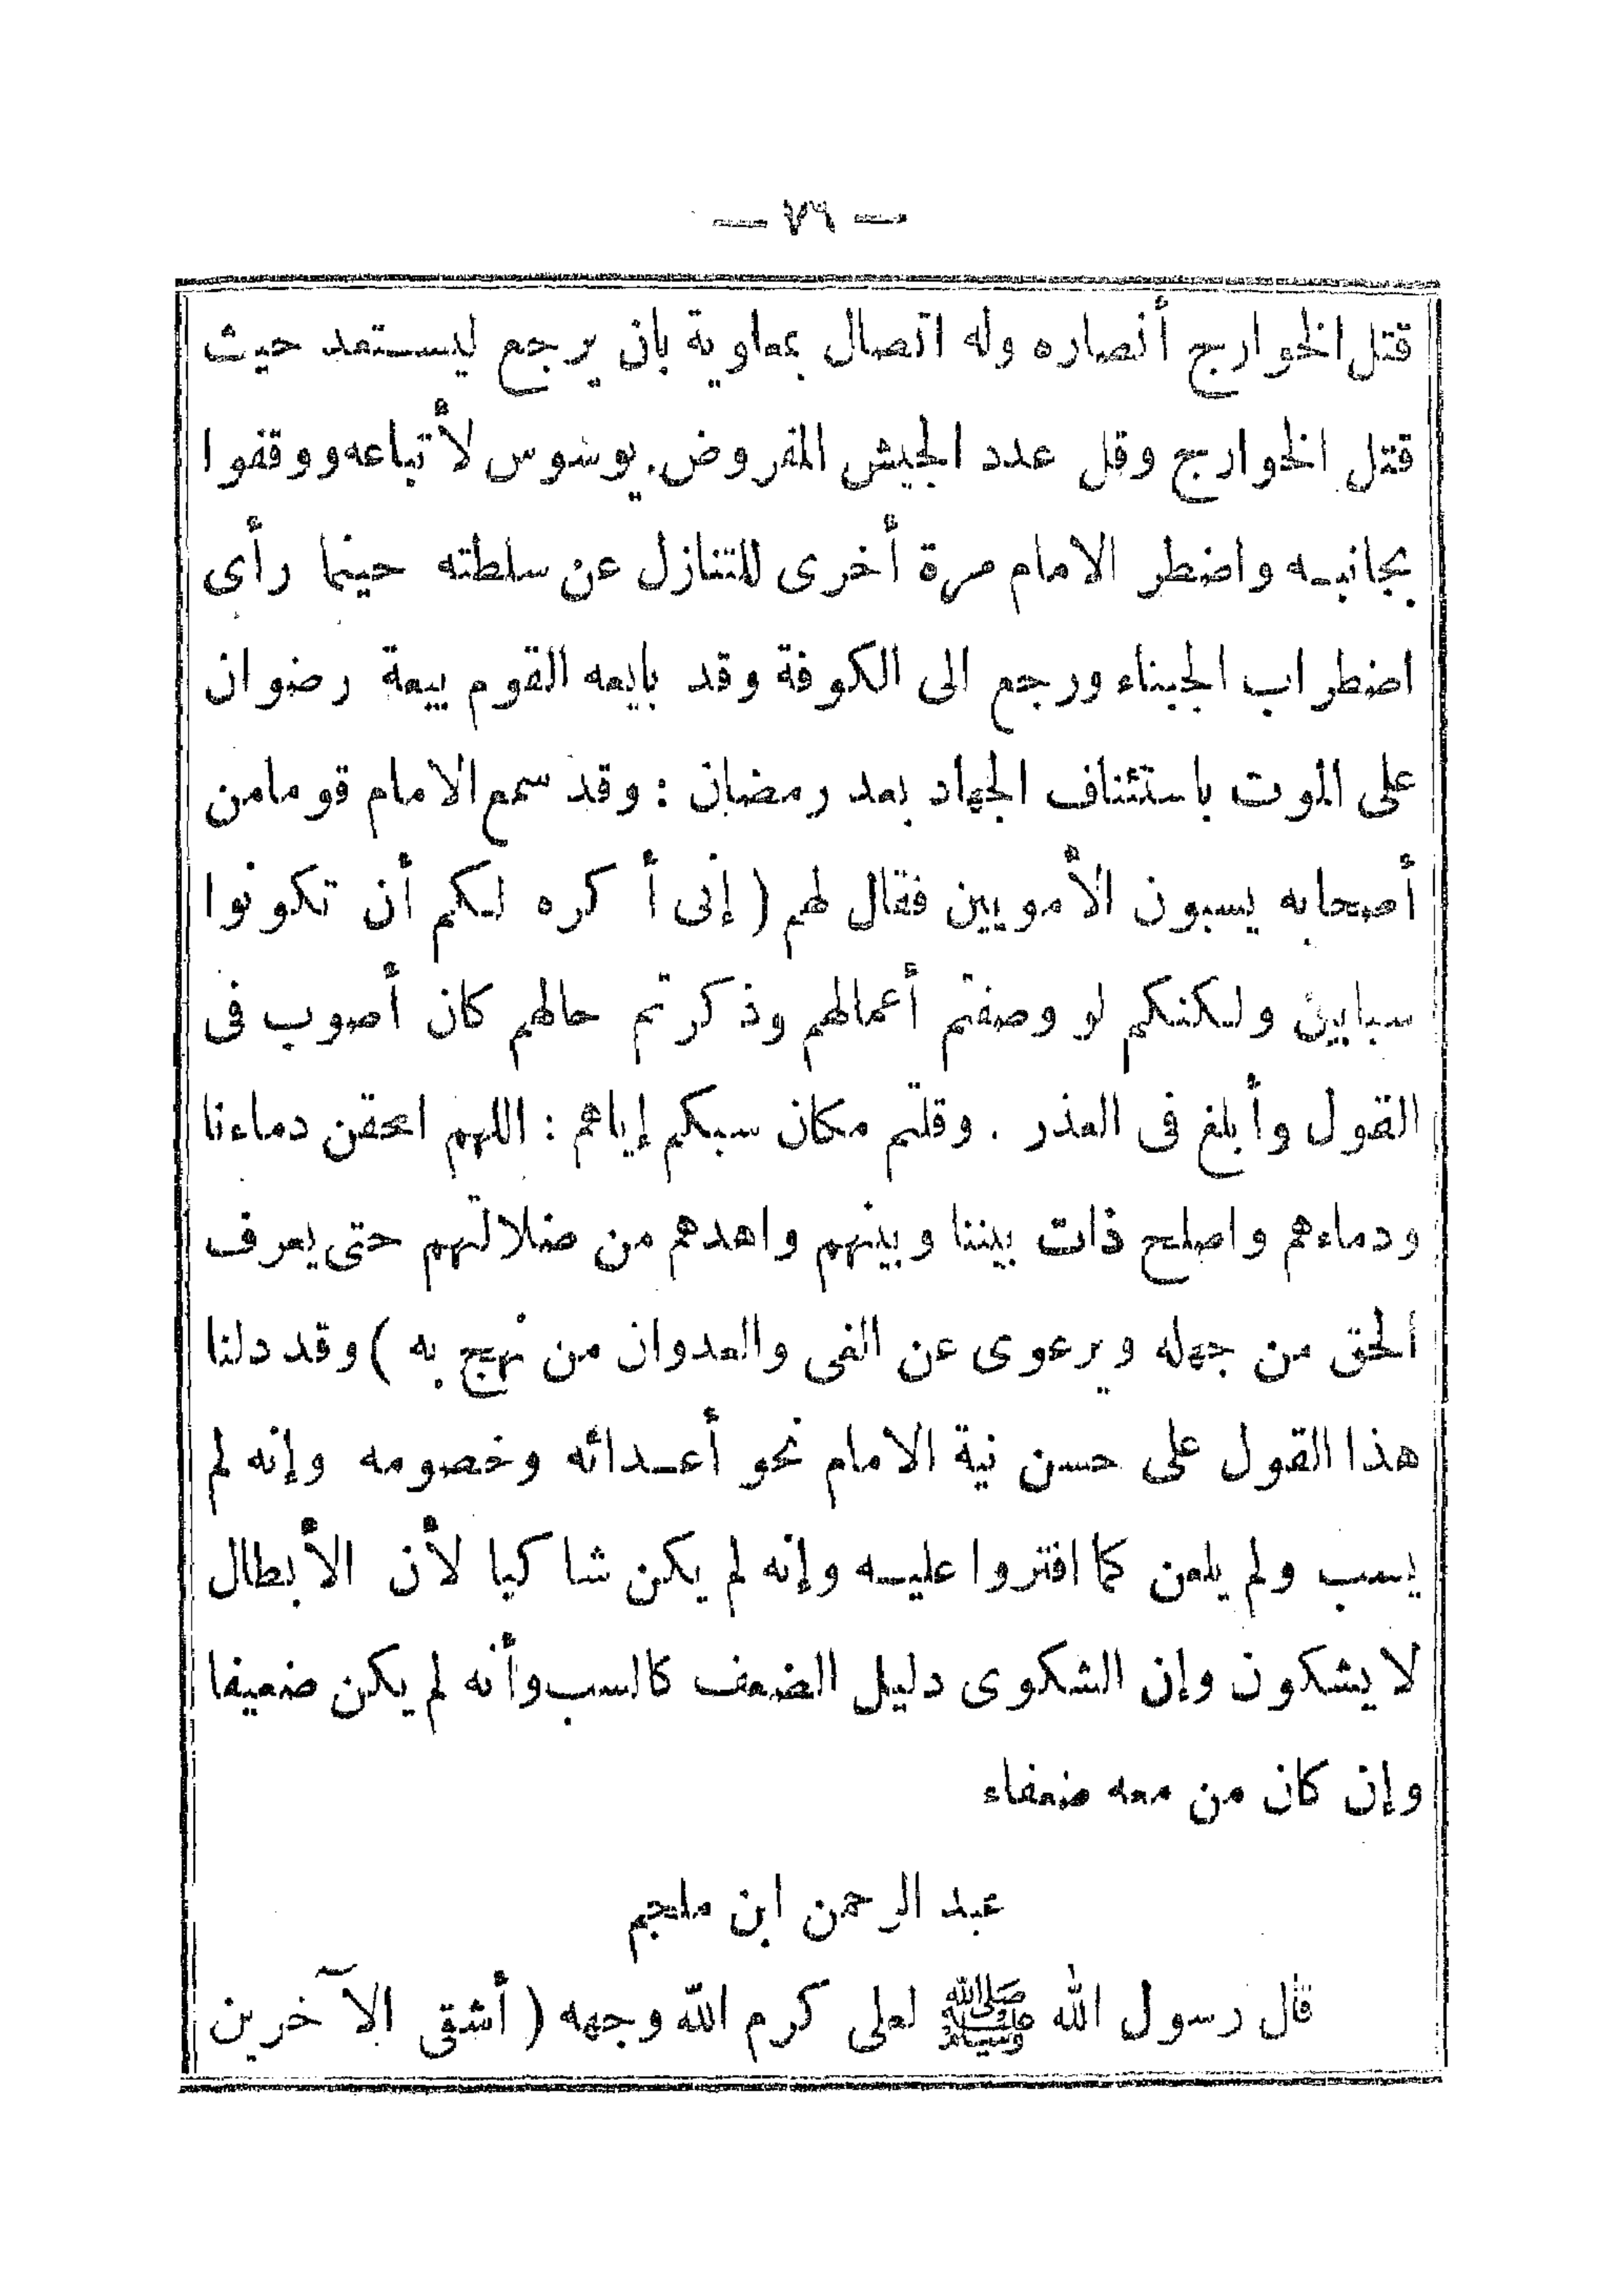 — ٧٦ —
قتل الخوارج أنصاره وله اتصال بمعاوية بان يرجع ليستعد حيث
قتل الخوارج وقل عدد الجيش المفروض. يوسوس لأتباعه ووقفوا
بجانبه واضطر الامام مرة أخرى للتنازل عن سلطته حينما رأى
اضطراب الجبناء ورجع الى الكوفة وقد بايعه القوم بيعة رضوان
على الموت باستئناف الجهاد بعد رمضان : وقد سمع الامام قوما من
أصحابه يسبون الأمويين فقال لهم ( إنى أكره لكم أن تكونوا
سبابين ولكنكم لو وصفتم أعمالهم وذكرتم حالهم كان أصوب فى
القول وأبلغ فى العذر . وقلتم مكان سبكم إياهم : اللهم احقن دماءنا
ودماءهم واصلح ذات بيننا وبينهم واهدهم من ضلالتهم حتى يعرف
ألحق من جهله ويرعوى عن الغى والعدوان من نهج به ) وقد دلنا
هذا القول على حسن نية الامام نحو أعدائه وخصومه وإنه لم
يسب ولم يلعن كما افتروا عليه وإنه لم يكن شاكيا لأن الأبطال
لا يشكون وإن الشكوى دليل الضعف كالسب وأنه لم يكن ضعيفا
وإن كان من معه ضعفاء
عبد الرحمن ابن ملجم
قال رسول الله ﷺ لعلى كرم الله وجهه ( أشقى الآخرين